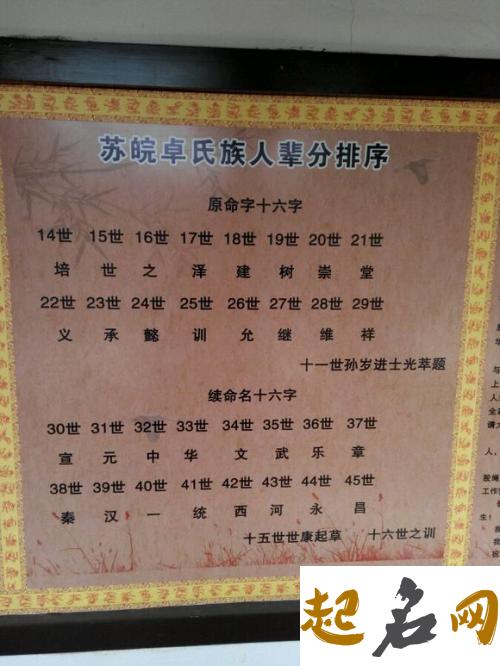 苏皖卓氏族人辈分排序
原命字十六字
14世 15世 16世 17世 18世 19世 20世 21世
培 世 之 泽 建 树 崇 堂
22世 23世 24世 25世 26世 27世 28世 29世
义 承 懿 训 允 继 维 祥
十一世孙岁进士光萃题
续命名十六字
30世 31世 32世 33世 34世 35世 36世 37世
宣 元 中 华 文 武 乐 章
38世 39世 40世 41世 42世 43世 44世 45世
秦 汉 一 统 西 河 永 昌
十五世世康起草 十六世之训
起名网